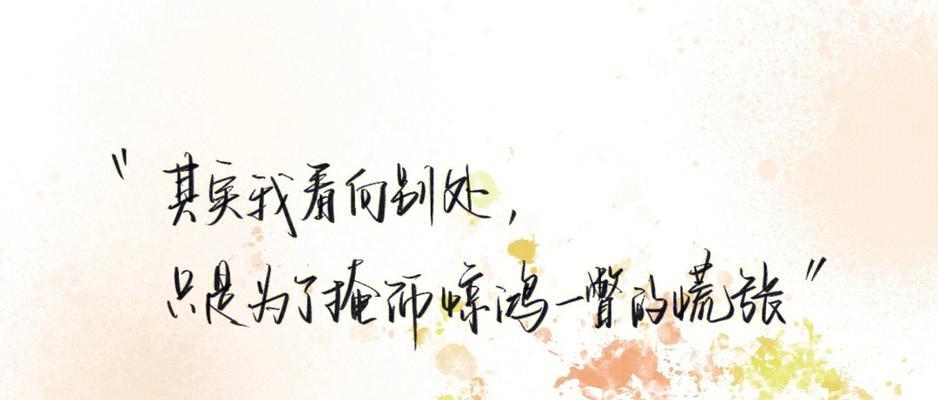 "其实我看向别处,
只是为了掩饰惊鸿一瞥的慌张"